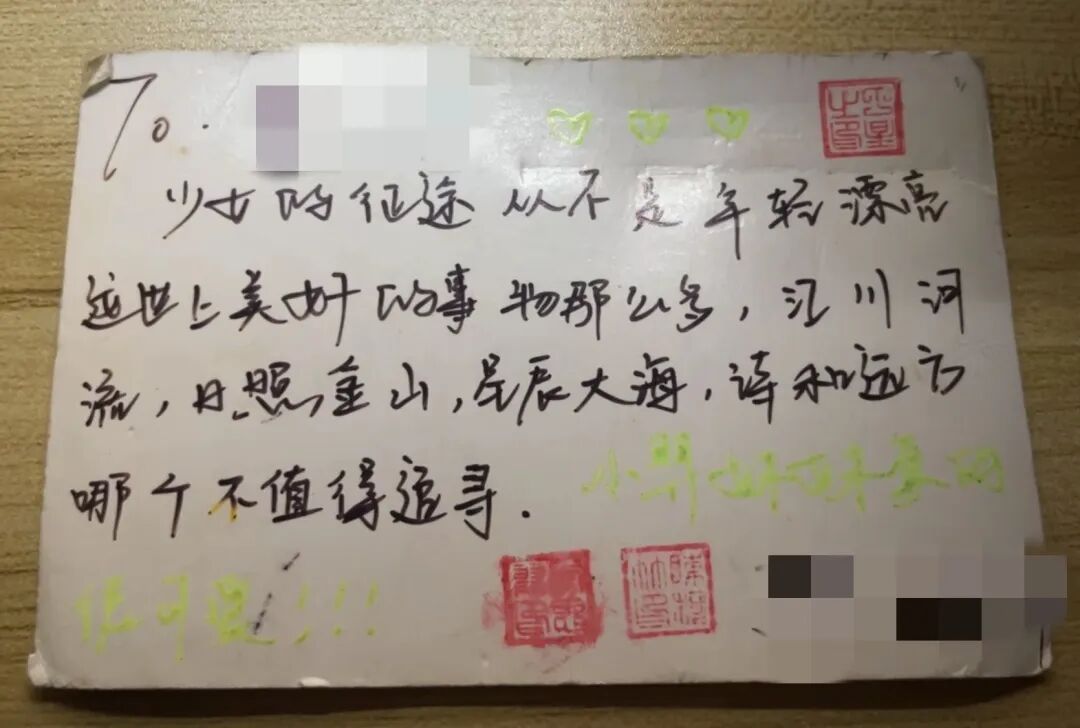 To.
少女的征途从不是年轻漂亮
这世上美好的事物那么多，江川河
流，日照金山，星辰大海，诗和远方
哪个不值得追寻.